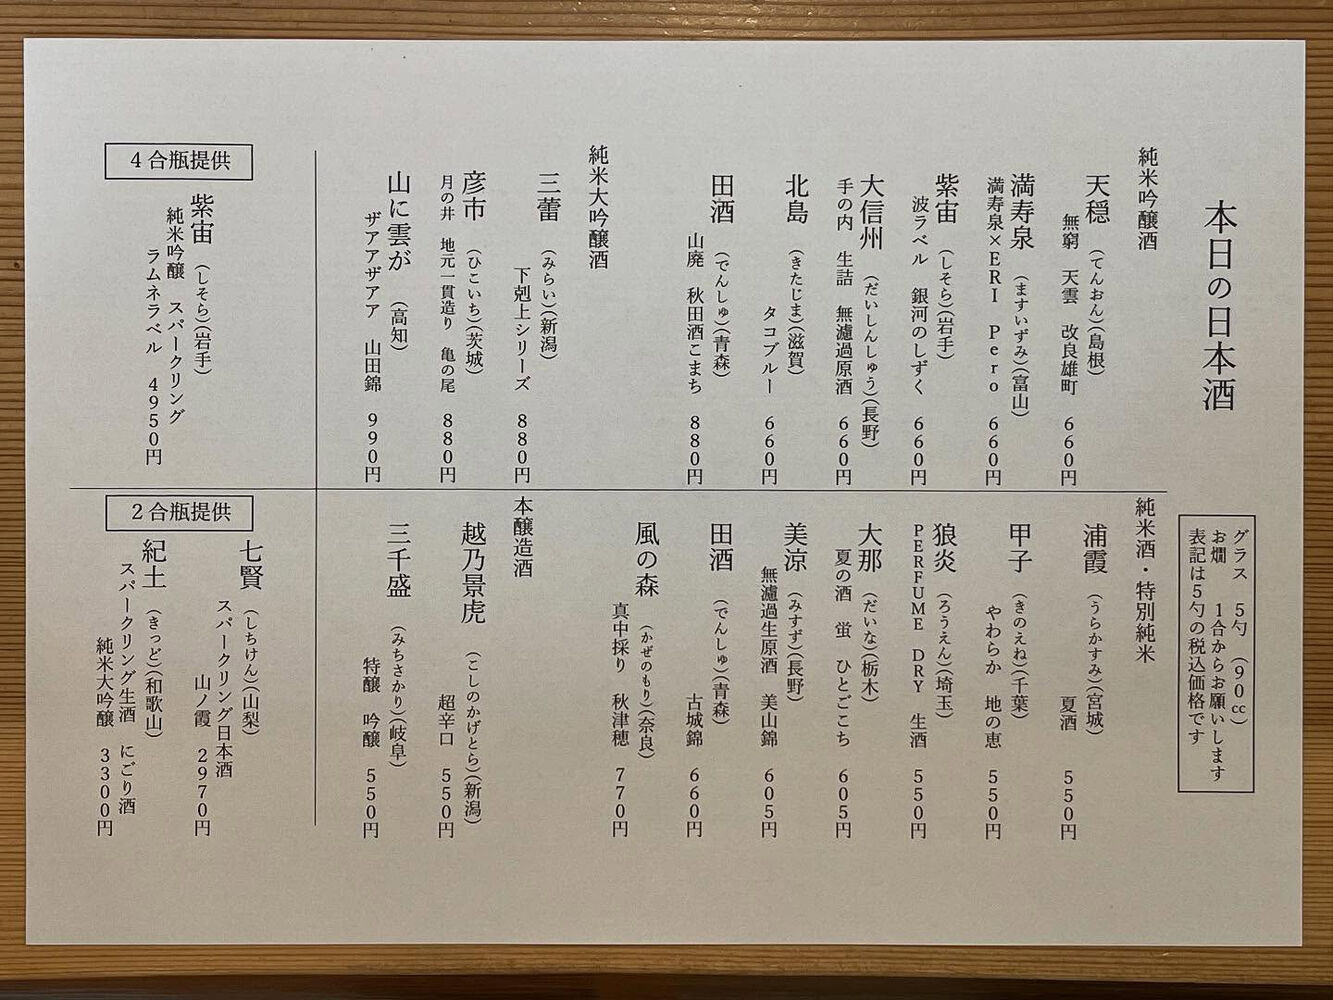 本日の日本酒
グラス　5勺　(90cc)
お燗　1合からお願いします
表記は5勺の税込価格です
純米吟醸酒
天穏　(てんおん)(島根)
無窮　天雲　改良雄町　660円
満寿泉　(ますいずみ)(富山)
満寿泉×ERI Pero　660円
紫宙　(しそら)(岩手)
波ラベル　銀河のしずく　660円
大信州　(だいしんしゅう)(長野)
手の内　生詰　無濾過原酒　660円
北島　(きたじま)(滋賀)
タコブルー　660円
田酒　(でんしゅ)(青森)
山廃　秋田酒こまち　880円
純米大吟醸酒
三蕾　(みらい)(新潟)
下剋上シリーズ　880円
彦市　(ひこいち)(茨城)
月の井　地元一貫造り　亀の尾　880円
山に雲が　(高知)
ザアアザアア　山田錦　990円
純米酒・特別純米
浦霞　(うらかすみ)(宮城)
夏酒　550円
甲子　(きのえね)(千葉)
やわらか　地の恵　550円
狼炎　(ろうえん)(埼玉)
PERFUME DRY　生酒　550円
大那　(だいな)(栃木)
夏の酒　蛍　ひとごこち　605円
美涼　(みすず)(長野)
無濾過生原酒　美山錦　605円
田酒　(でんしゅ)(青森)
古城錦　660円
風の森　(かぜのもり)(奈良)
真中採り　秋津穂　770円
本醸造酒
越乃景虎　(こしのかげとら)(新潟)
超辛口　550円
三千盛　(みちさかり)(岐阜)
特醸　吟醸　550円
4合瓶提供
紫宙　(しそら)(岩手)
純米吟醸　スパークリング
ラムネラベル　4950円
2合瓶提供
七賢　(しちけん)(山梨)
スパークリング日本酒
山ノ霞　2970円
紀土　(きっど)(和歌山)
スパークリング生酒　にごり酒
純米大吟醸　3300円